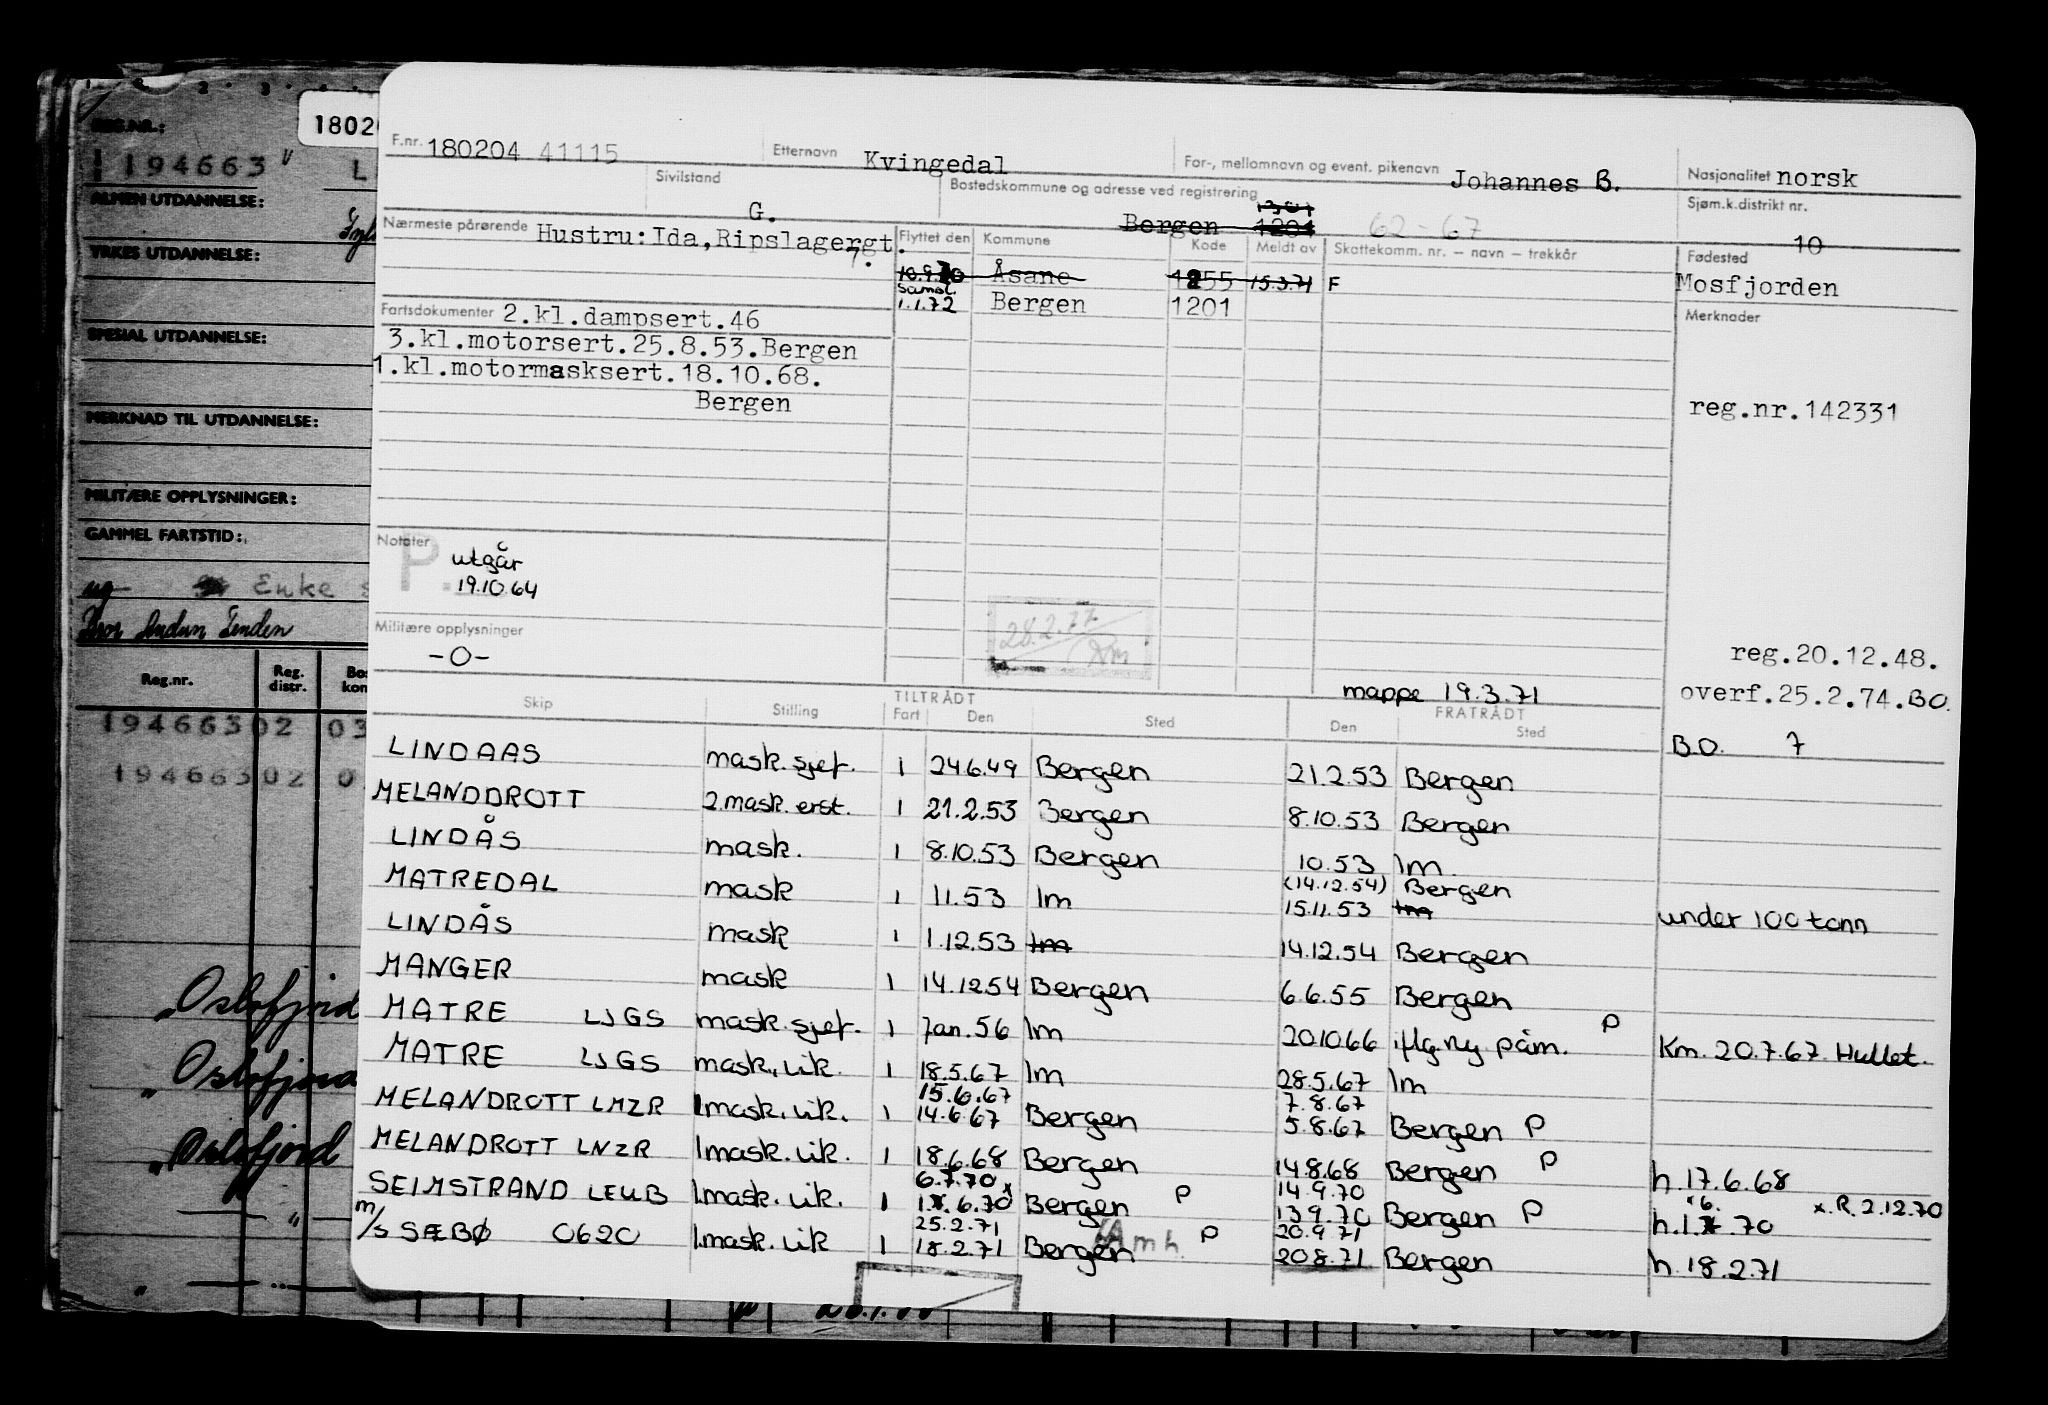 F.nr. 180204 41115 Etternavn Kvingedal For-, mellomnavn og event. pikenavn Johannes B. Nasjonalitet norsk
Sivilstand G. Bostedskommune og adresse ved registrering Bergen 1301 1201 62-67 Sjøm.k.distrikt nr. 10
Nærmeste pårørende Hustru: Ida, Ripslagergt. 7. Flyttet den Kommune Kode Meldt av Skattekomm. nr. – navn – trekkår Fødested
10.9.70 Åsane 1255 15.3.71 F Mosfjorden
Saml. 1.1.72 Bergen 1201
Merknader
Fartsdokumenter 2.kl.dampsert.46
3.kl.motorsert.25.8.53.Bergen
1.kl.motormasksert.18.10.68.
Bergen
reg.nr.142331
Notater
P. utgår
19.10.64
28.2.77
Militære opplysninger
-0-
reg.20.12.48.
mappe 19.3.71 overf.25.2.74.BO.
BO. 7
TILTRÅDT FRATRÅDT
Skip Stilling Fart Den Sted Den Sted
LINDAAS mask.sjef. 1 24.6.49 Bergen 21.2.53 Bergen
MELANDDROTT 2.mask.erst. 1 21.2.53 Bergen 8.10.53 Bergen
LINDÅS mask. 1 8.10.53 Bergen 10.53 lm
(14.12.54) Bergen
MATREDAL mask 1 11.53 lm 15.11.53 lm under 100 tonn
LINDÅS mask 1 1.12.53 lm 14.12.54 Bergen
MANGER mask 1 14.12.54 Bergen 6.6.55 Bergen
MATRE LJGS mask.sjef. 1 Jan.56 lm 20.10.66 iflg ny påm. P Km. 20.7.67 Hullet.
MATRE LJGS mask.vik. 1 18.5.67 lm 28.5.67 lm
15.6.67 7.8.67
MELANDROTT LMZR 1mask.vik. 1 14.6.67 Bergen 5.8.67 Bergen P
MELANDROTT LNZR 1mask.vik. 1 18.6.68 Bergen 14.8.68 Bergen P h.17.6.68
6.7.70 x 14.9.70 x.R.2.12.70
SEIMSTRAND LEUB 1.mask.vik. 1 1.6.70 Bergen P 13.9.70 Bergen P h.1.6.70
25.2.71 20.9.71
m/s SÆBØ 0620 1.mask.vik 1 18.2.71 Bergen Amh. P 20.8.71 Bergen h 18.2.71
1802
REG.NR.:
194663 L
ALMEN UTDANNELSE:
YRKES UTDANNELSE:
SPESIAL UTDANNELSE:
MERKNAD TIL UTDANNELSE:
MILITÆRE OPPLYSNINGER:
GAMMEL FARTSTID:
ug Enke
Reg.nr. Reg. distr. Bo kon
194663 02 03
194663 02 0
Oslofjord
" Oslofjord
" Oslofjord